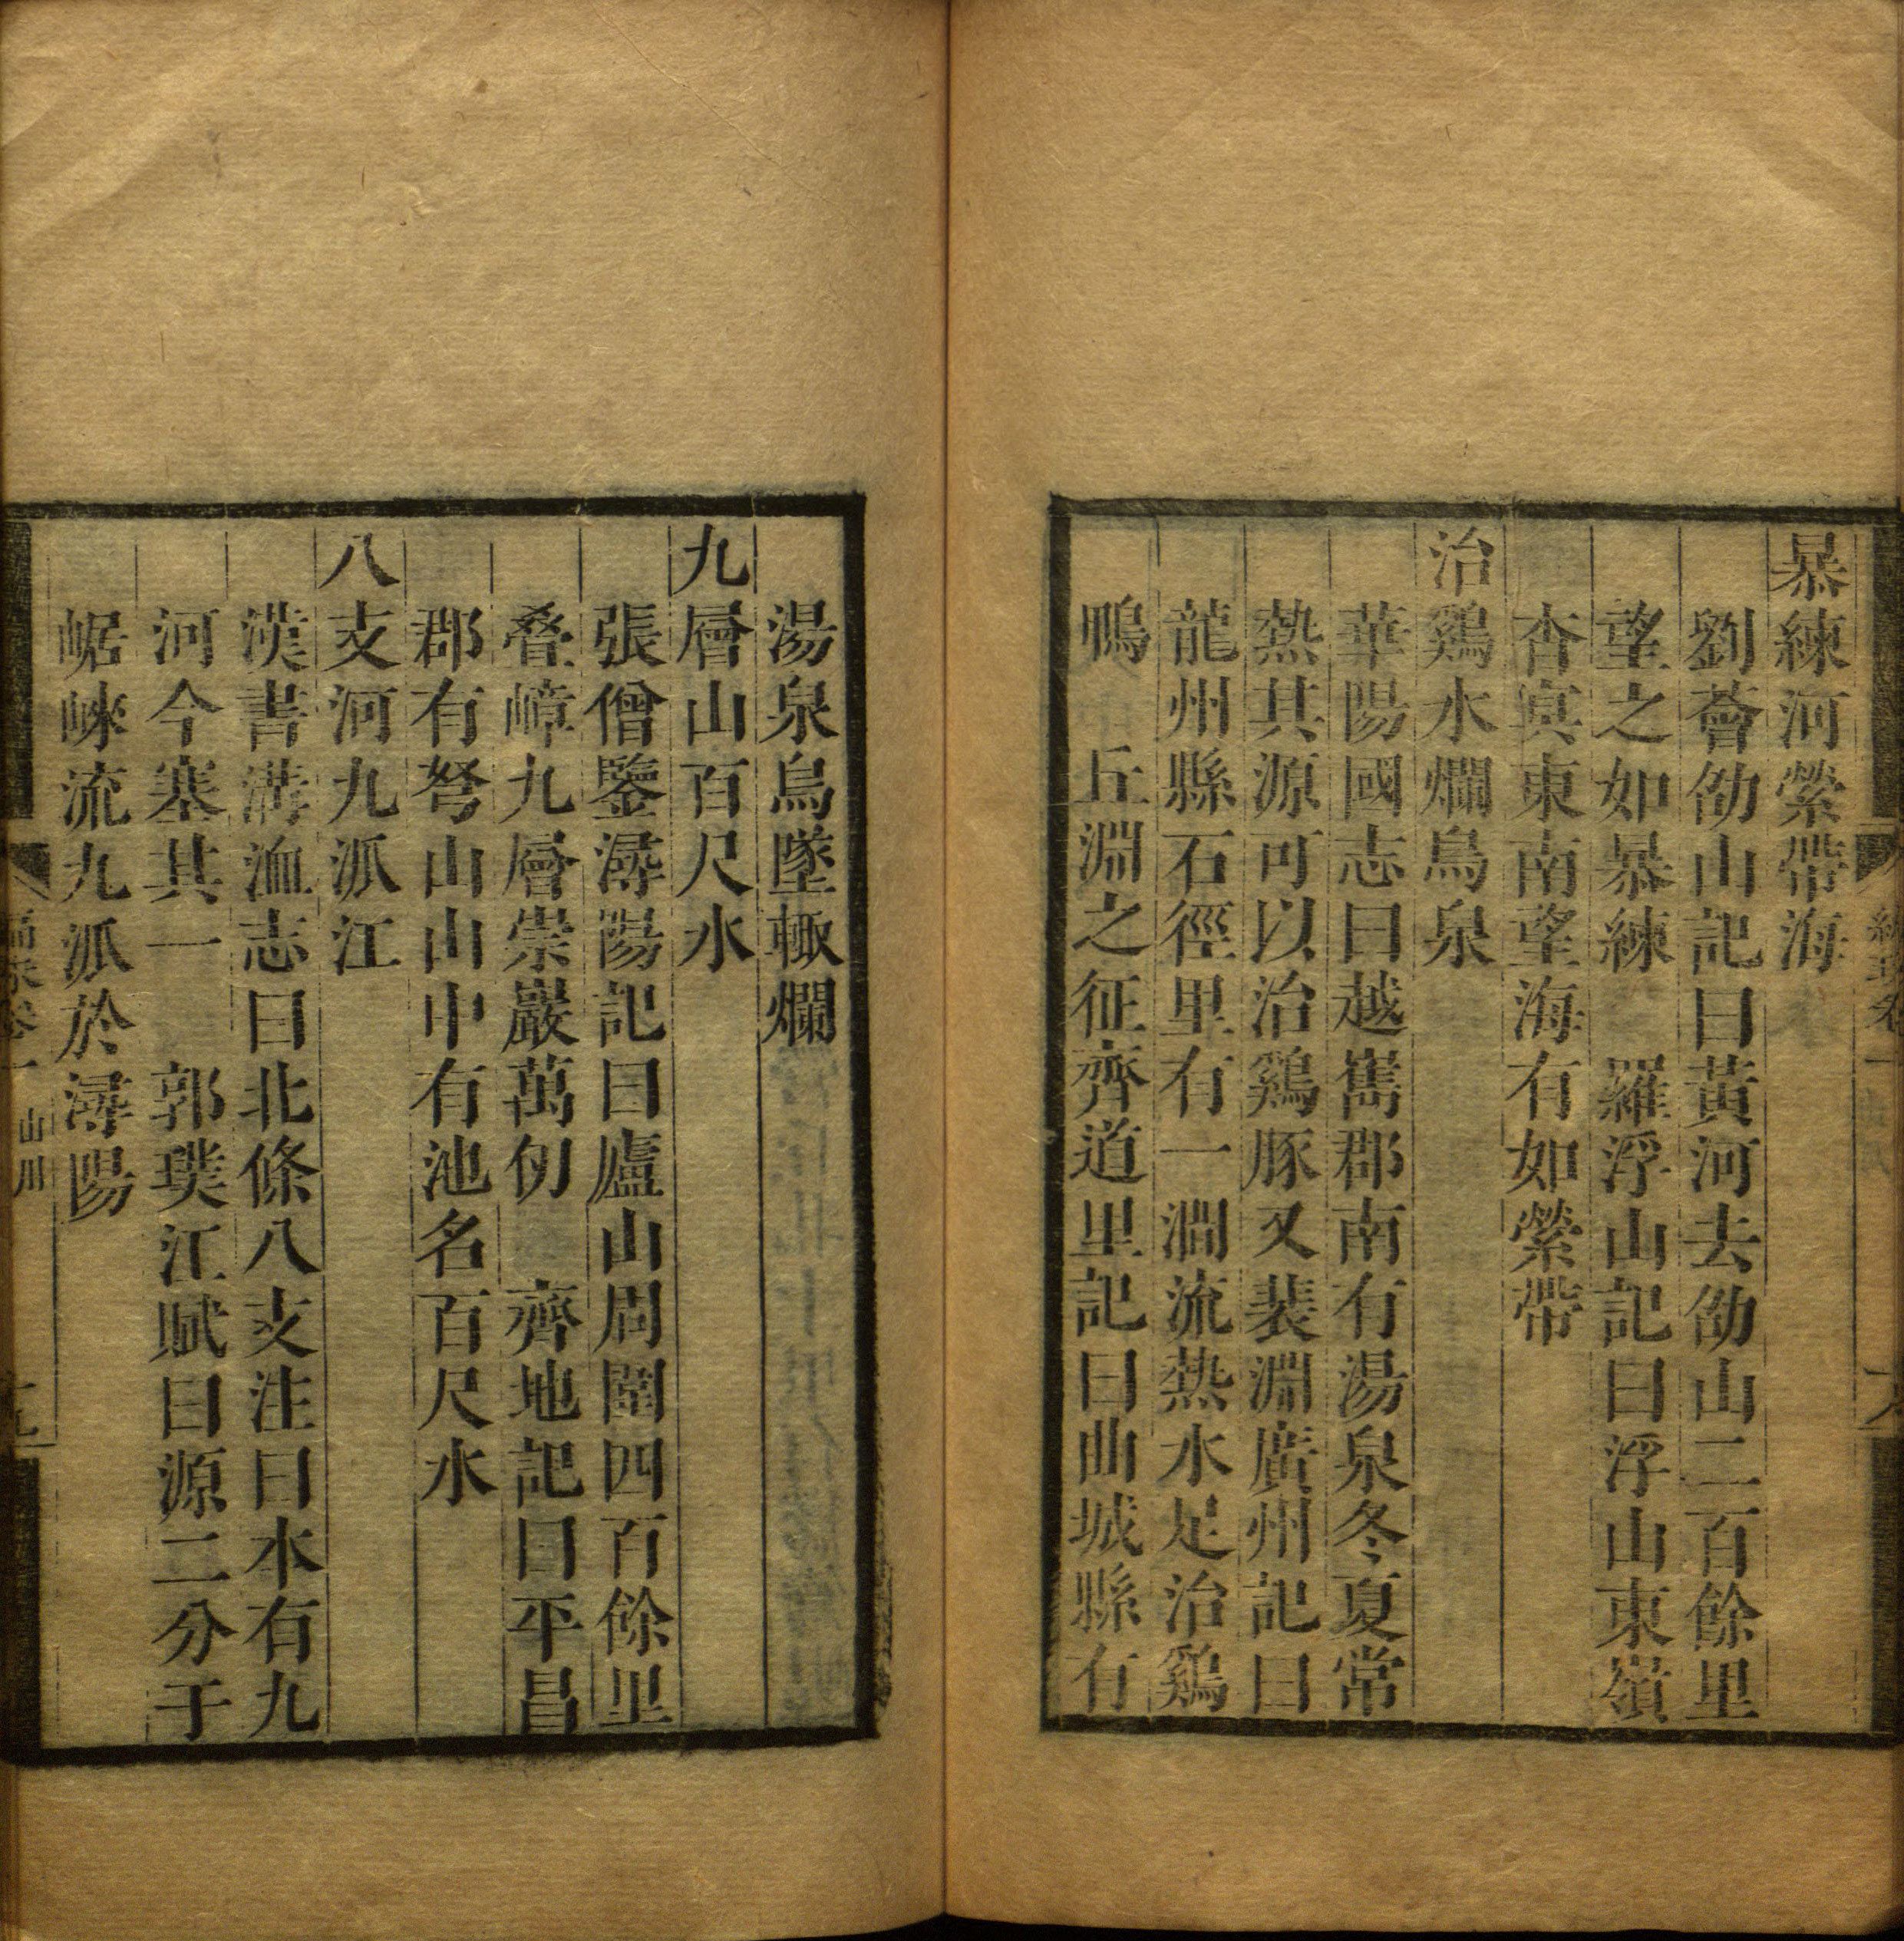 暴練河縈帶海
劉薈劭山記曰黃河去劭山二百餘里
望之如暴練　羅浮山記曰浮山東嶺
杳㝠東南望海有如縈帶
治鷄水爛鳥泉
華陽國志曰越嶲郡南有湯泉冬夏常
熱其源可以治鷄豚又裴淵廣州記曰
龍州縣石徑里有一澗流熱水足治鷄
鴨　丘淵之征齊道里記曰曲城縣有
湯泉鳥墜輙爛
九層山百尺水
張僧鑒潯陽記曰廬山周圍四百餘里
叠嶂九層崇巖萬仞　齊地記曰平昌
郡有弩山山中有池名百尺水
八支河九派江
漢書溝洫志曰北條八支注曰本有九
河今塞其一　郭璞江賦曰源二分于
崌崍流九派於潯陽
山川